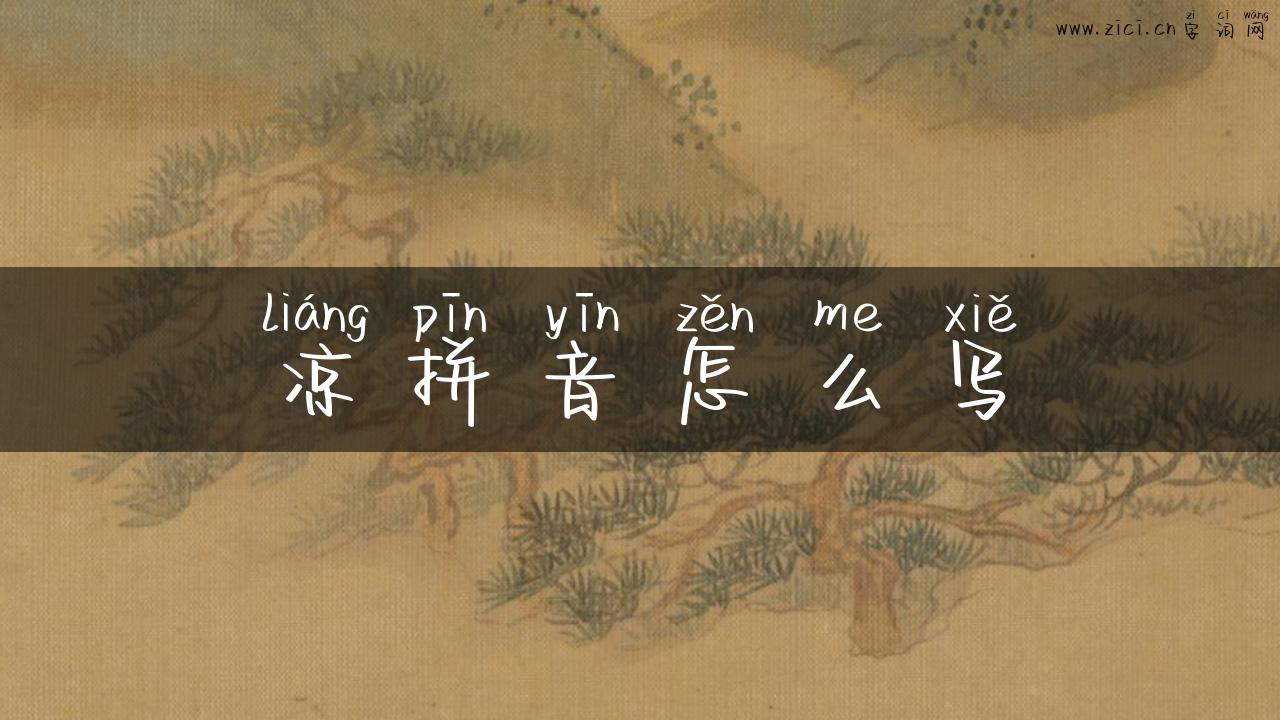 zì cí wǎng
www.zici.cn 字 词 网
liáng pīn yīn zěn me xiě
凉 拼 音 怎 么 写